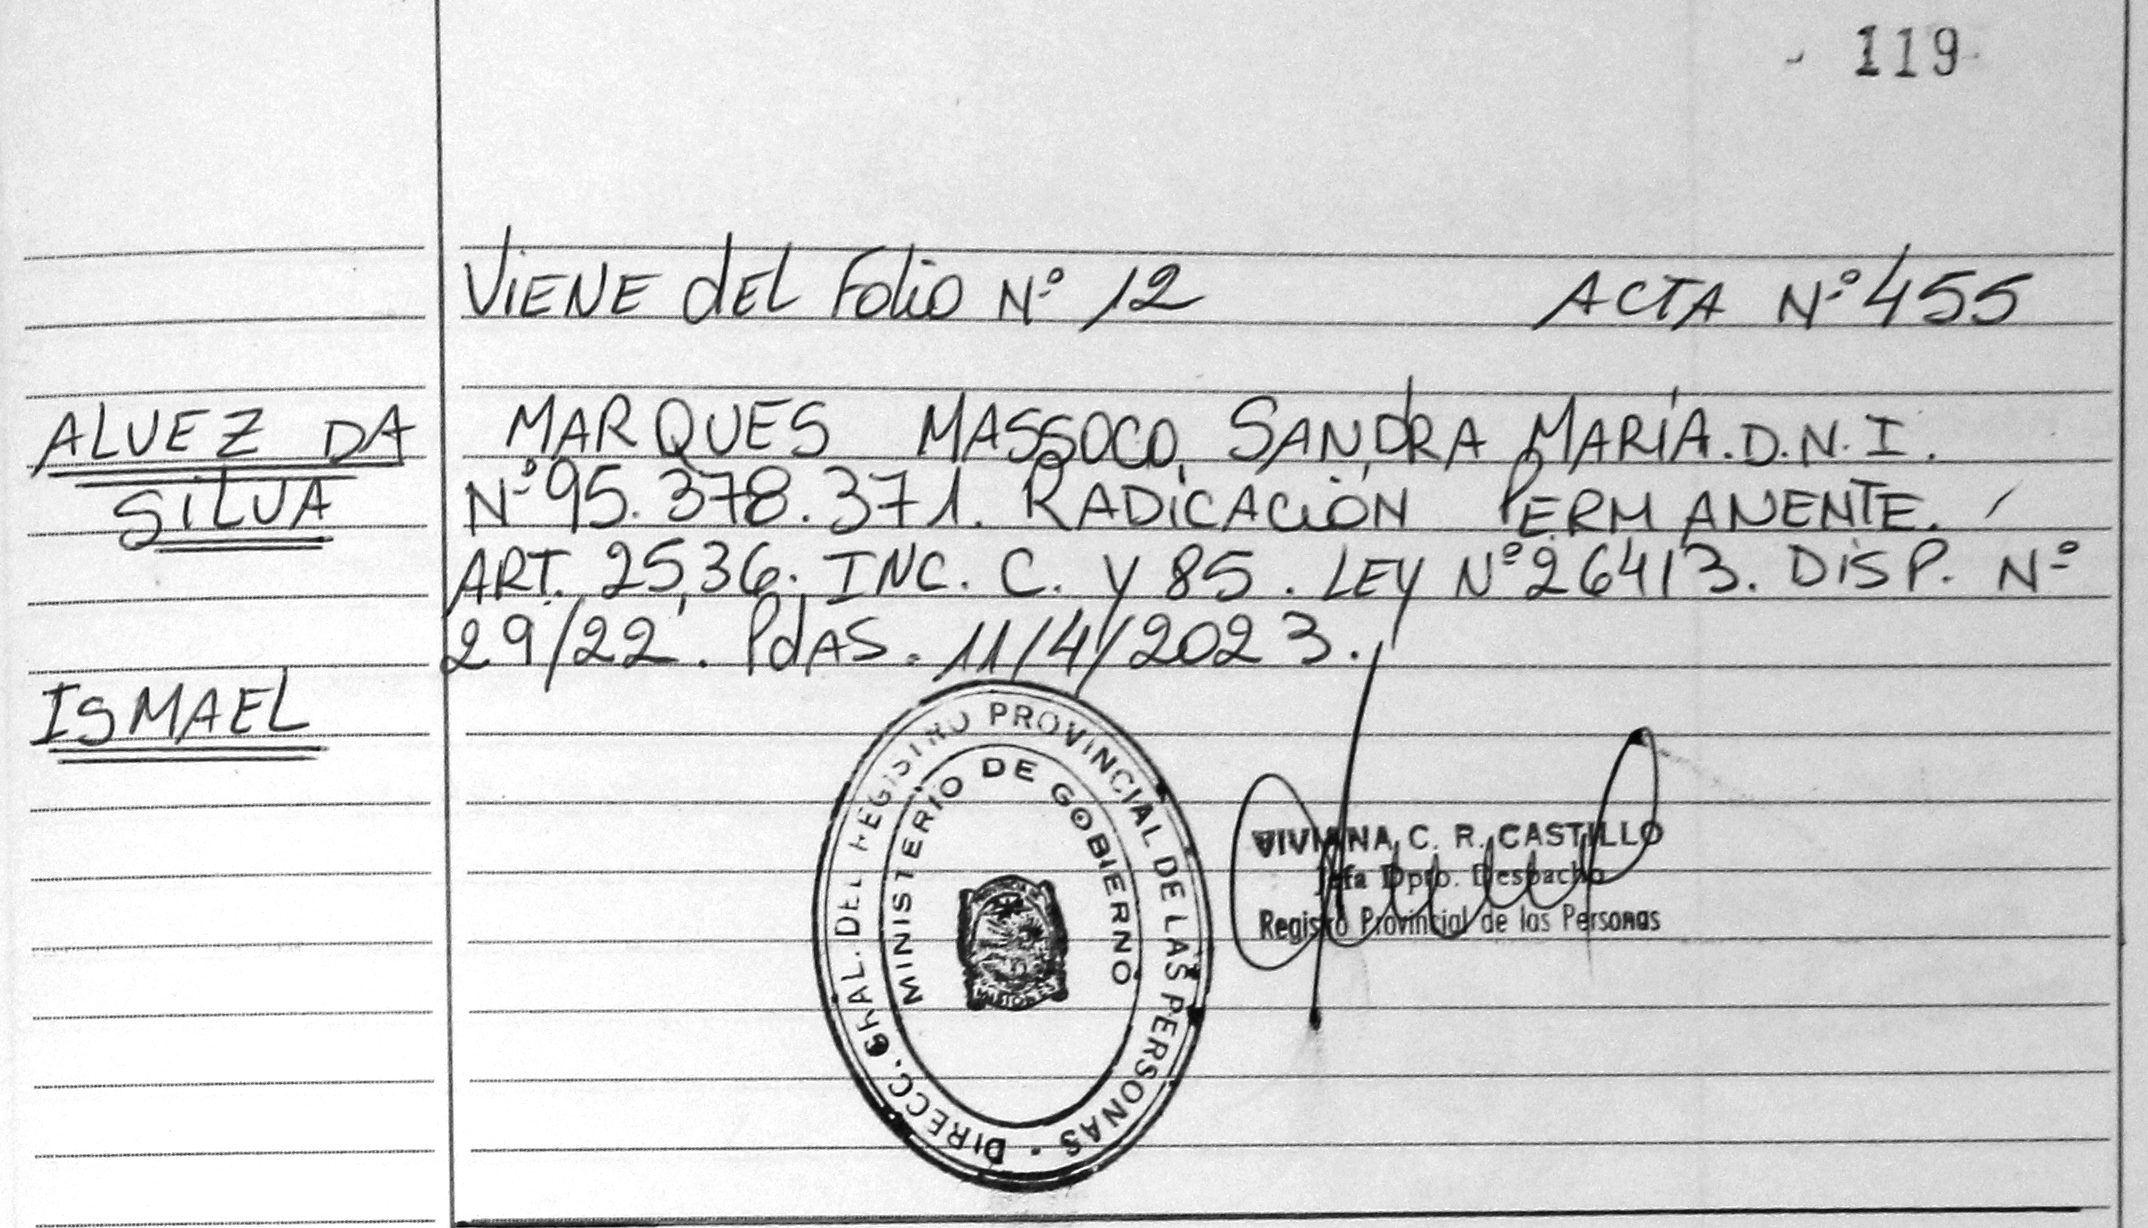 - 119-
ViENE dEL Folio Nº 12 ACTA Nº 455
ALVEZ DA
SILVA
ISMAEL
MARQUES MASSOCO, SANDRA MARÍA. D.N.I.
Nº 95.378.371. RADICACIÓN PERMANENTE.
ART. 25,36. INC. C. Y 85. LEY Nº 26413. DISP. Nº
29/22. PdAS. 11/4/2023.
DIRECC. GRAL. DEL REGISTRO PROVINCIAL DE LAS PERSONAS
MINISTERIO DE GOBIERNO
MISIONES
VIVIANA C. R. CASTILLO
Jefa Dpto. Despacho
Registro Provincial de las Personas